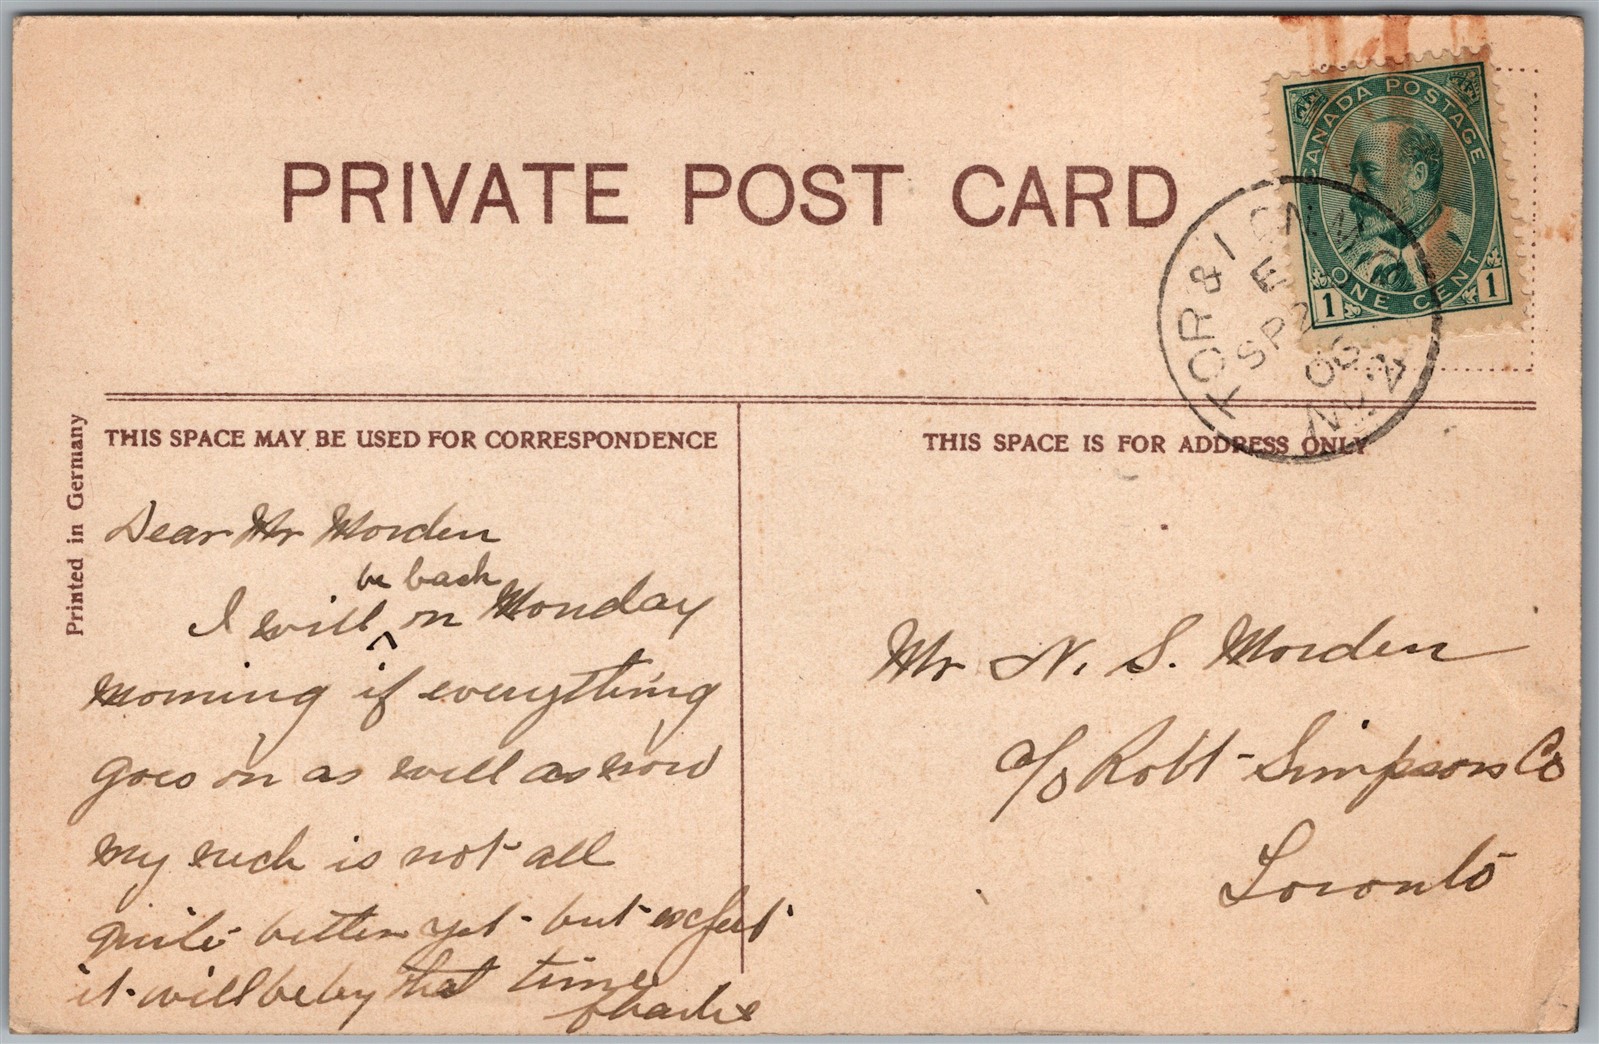 PRIVATE POST CARD
CANADA POSTAGE
ONE CENT
1 1
TOR & LON. M.C.
E
SP 2
08
THIS SPACE MAY BE USED FOR CORRESPONDENCE
THIS SPACE IS FOR ADDRESS ONLY
Printed in Germany
Dear Mr Morden
be back
I will ^ on Monday
morning if everything
goes on as well as now
my neck is not all
quite better yet but expect
it will be by that time
Charlie
Mr N. S. Morden
c/o Robt Simpson Co
Toronto